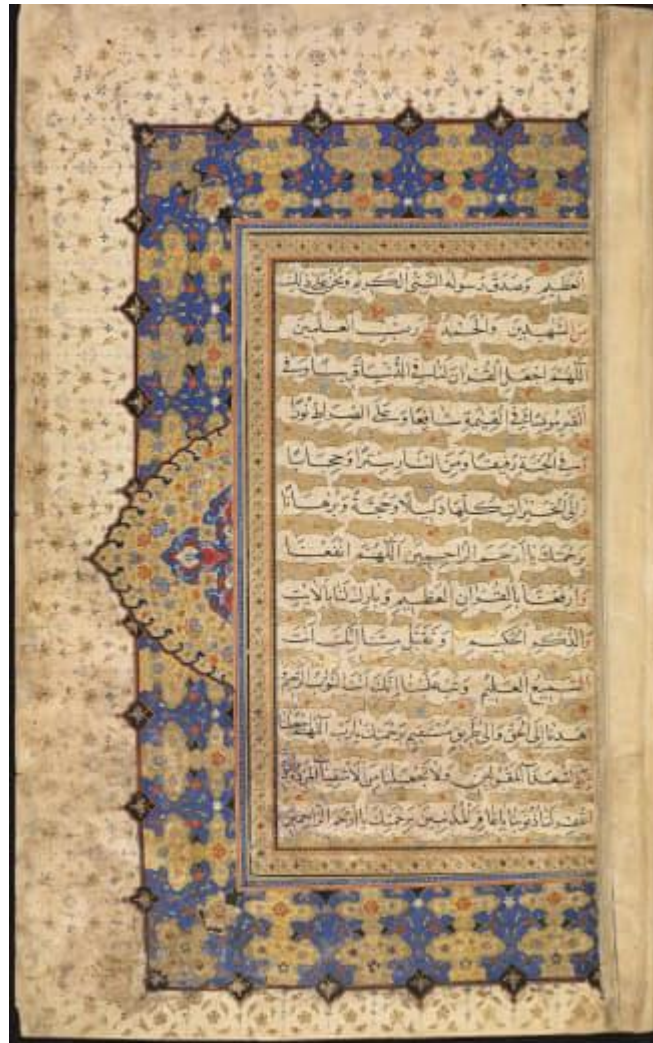 العظيم وصدق رسوله النبي الكريم ونحن على ذلك
من الشهدين والحمد لله رب العلمين
اللهم اجعل القران لنا في الدنيا
القبر مونسا وفي القيمة شافعا وعلى الصراط نورا
وفي الجنة رفيقا ومن النار سترا وحجابا
والى الخيرات كلها دليلا وحجة وبرهانا
برحمتك يا ارحم الراحمين اللهم انفعنا
وارفعنا بالقران العظيم وبارك لنا بالايت
والذكر الحكيم وتقبل منا انك انت
السميع العليم وتب علينا انك انت التواب الرحيم
هدنا الى الحق والى طريق مستقيم برحمتك يارب اللهم اجعلنا
ولا تجعلنا من الاشقياء
اغفر لنا ذنوبنا يا غافر المذنبين برحمتك يا ارحم الراحمين